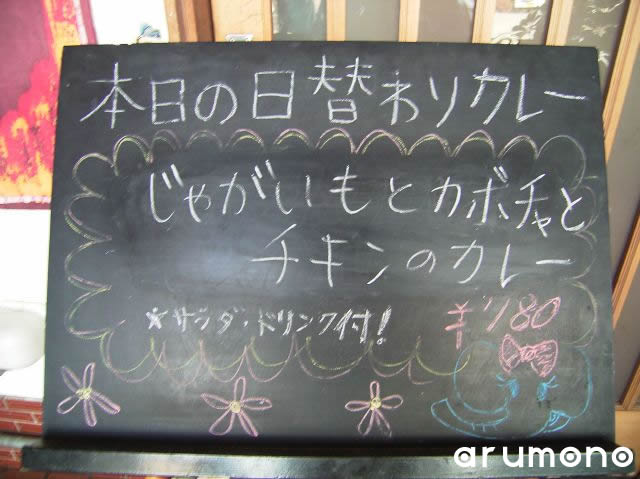 本日の日替わりカレー
じゃがいもとカボチャと
チキンのカレー
★サラダ・ドリンク付!
¥780
arumono